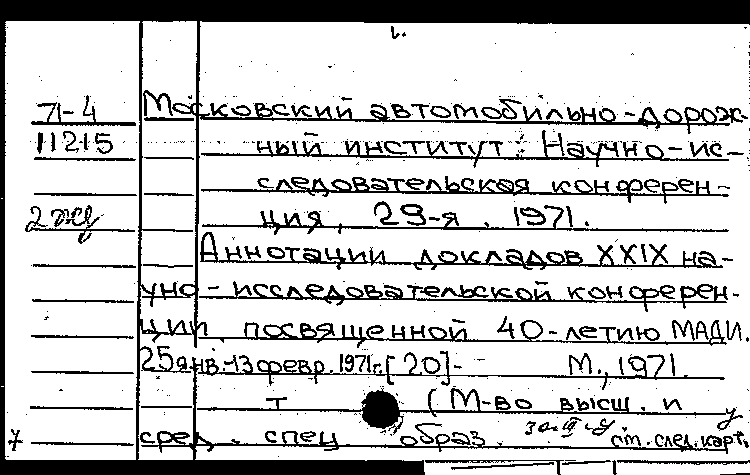 71-4 Московский автомобильно-дорож-
11215 ный институт. Научно-ис-
следовательская конферен-
2 экз ция, 29-я. 1971.
Аннотации докладов XXIX на-
учно-исследовательской конферен-
ции, посвященной 40-летию МАДИ.
25 янв.-13 февр. 1971 г. [20]- М., 1971.
т (М-во высш. и
сред. спец образ. см. след. карт.